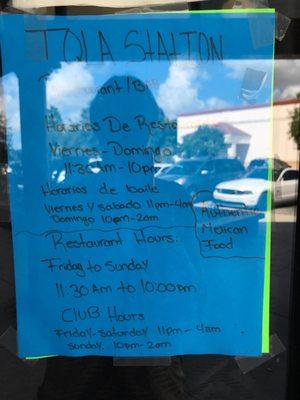 TOLA Station
Restaurant / Bar
Horarios De Resto
Viernes - Domingo
11:30 Am - 10pm
Horarios de baile
Viernes y sabado 11pm - 4am
Domingo 10pm - 2am
Authentic
Mexican
Food
Restaurant Hours:
Friday to Sunday
11:30 Am to 10:00pm
CLUB Hours
Friday - Saturday 11pm - 4am
Sunday 10pm - 2am